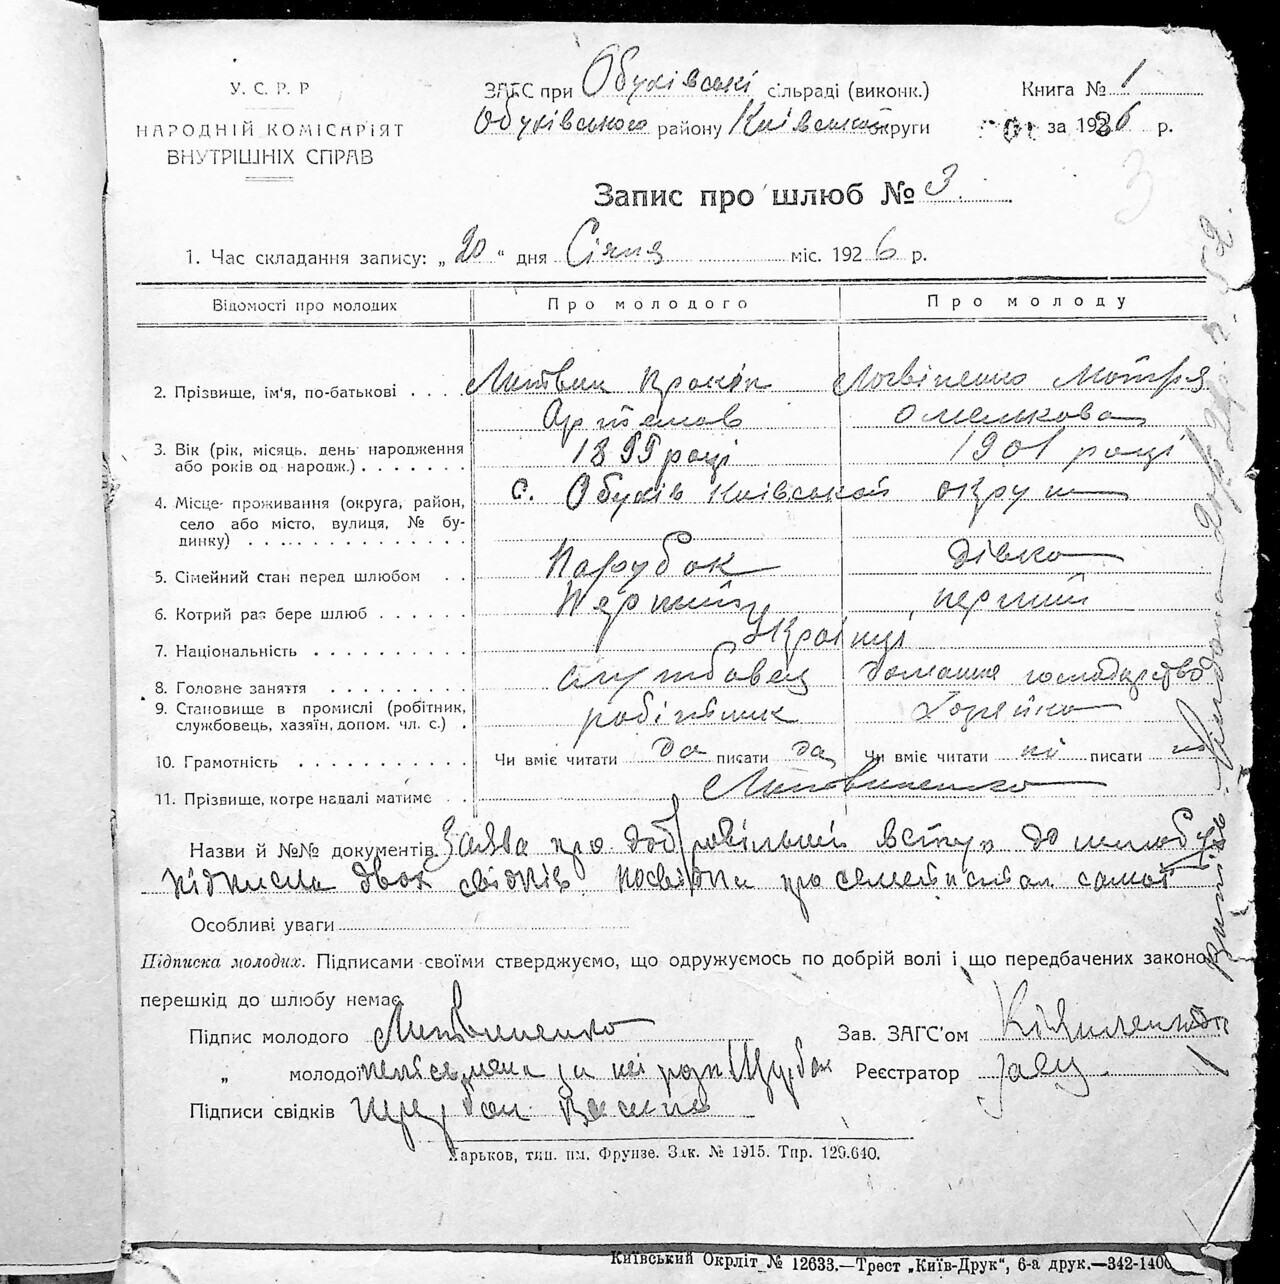 У. С. Р. Р
НАРОДНІЙ КОМІСАРІЯТ
ВНУТРІШНІХ СПРАВ
ЗАГС при Обухівські сільраді (виконк.)
Обухівського району Київської округи
Книга № 1
за 1926 р.
3
Запис про шлюб № 3
1. Час складання запису: „ 20 “ дня Січня міс. 1926 р.
Відомості про молодих Про молодого Про молоду
2. Прізвище, ім'я, по-батькові . . . . Литвин Прокіп Логвіненко Мотря
Артемов Омелькова
3. Вік (рік, місяць, день народження 1899 році 1901 році
або років од народж.) . . . . . . .
4. Місце проживання (округа, район, с. Обухів Київської округи
село або місто, вулиця, № бу-
динку) . . . . . . . . . . . . . .
5. Сімейний стан перед шлюбом . . Парубок дівка
6. Котрий раз бере шлюб . . . . . . Перший перший
7. Національність . . . . . . . . . . Украінці
8. Головне заняття . . . . . . . . . службовец домашнє господарство
9. Становище в промислі (робітник, робітник Хозяйка
службовець, хазяїн, допом. чл. с.) .
10. Грамотність . . . . . . . . . . . Чи вміє читати да писати да Чи вміє читати ні писати ні
11. Прізвище, котре надалі матиме . . Литвиненко
Назви й №№ документів Заява про добровільний вступ до шлюбу
підписка двох свідків
Особливі уваги
Підписка молодих. Підписами своїми стверджуємо, що одружуємось по добрій волі і що передбачених законом
перешкід до шлюбу немає
Підпис молодого Литвиненко Зав. ЗАГС'ом
„ молодої неписьмена за неї розп Щербак Реєстратор
Підписи свідків Щербак
Харьков, тип. им. Фрунзе. Зак. № 1915. Тир. 129.640.
Київський Окрліт № 12633.—Трест „Київ-Друк“, 6-а друк.—342-1400